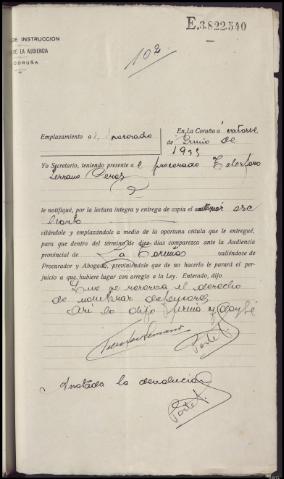 E.3.822.540
DE INSTRUCCIÓN
DE LA AUDIENCIA
CORUÑA
102.
Emplazamiento al procesado
En La Coruña a catorce
de Junio de
1933
Yo Secretario, teniendo presente a el procesado Telesforo
Serrano Perez
le notifiqué, por la lectura íntegra y entrega de copia el
citándole y emplazándole a medio de la oportuna cédula que le entregué,
para que dentro del término de diez días comparezca ante la Audiencia
provincial de La Coruña valiéndose
de Procurador y Abogado, previniéndole que de no hacerlo le parará el per-
juicio a que hubiere lugar con arreglo a la Ley. Enterado, dijo
Que se reserva el derecho
de nombrar defensores.
Así lo dijo firma y doy fe
Telesforo Serrano
Anotada la devolución